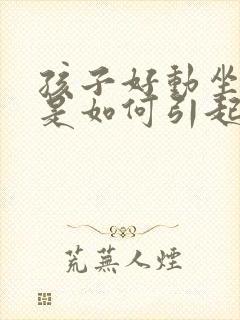 孩子好動坐
是如何引起
荒蕪人煙